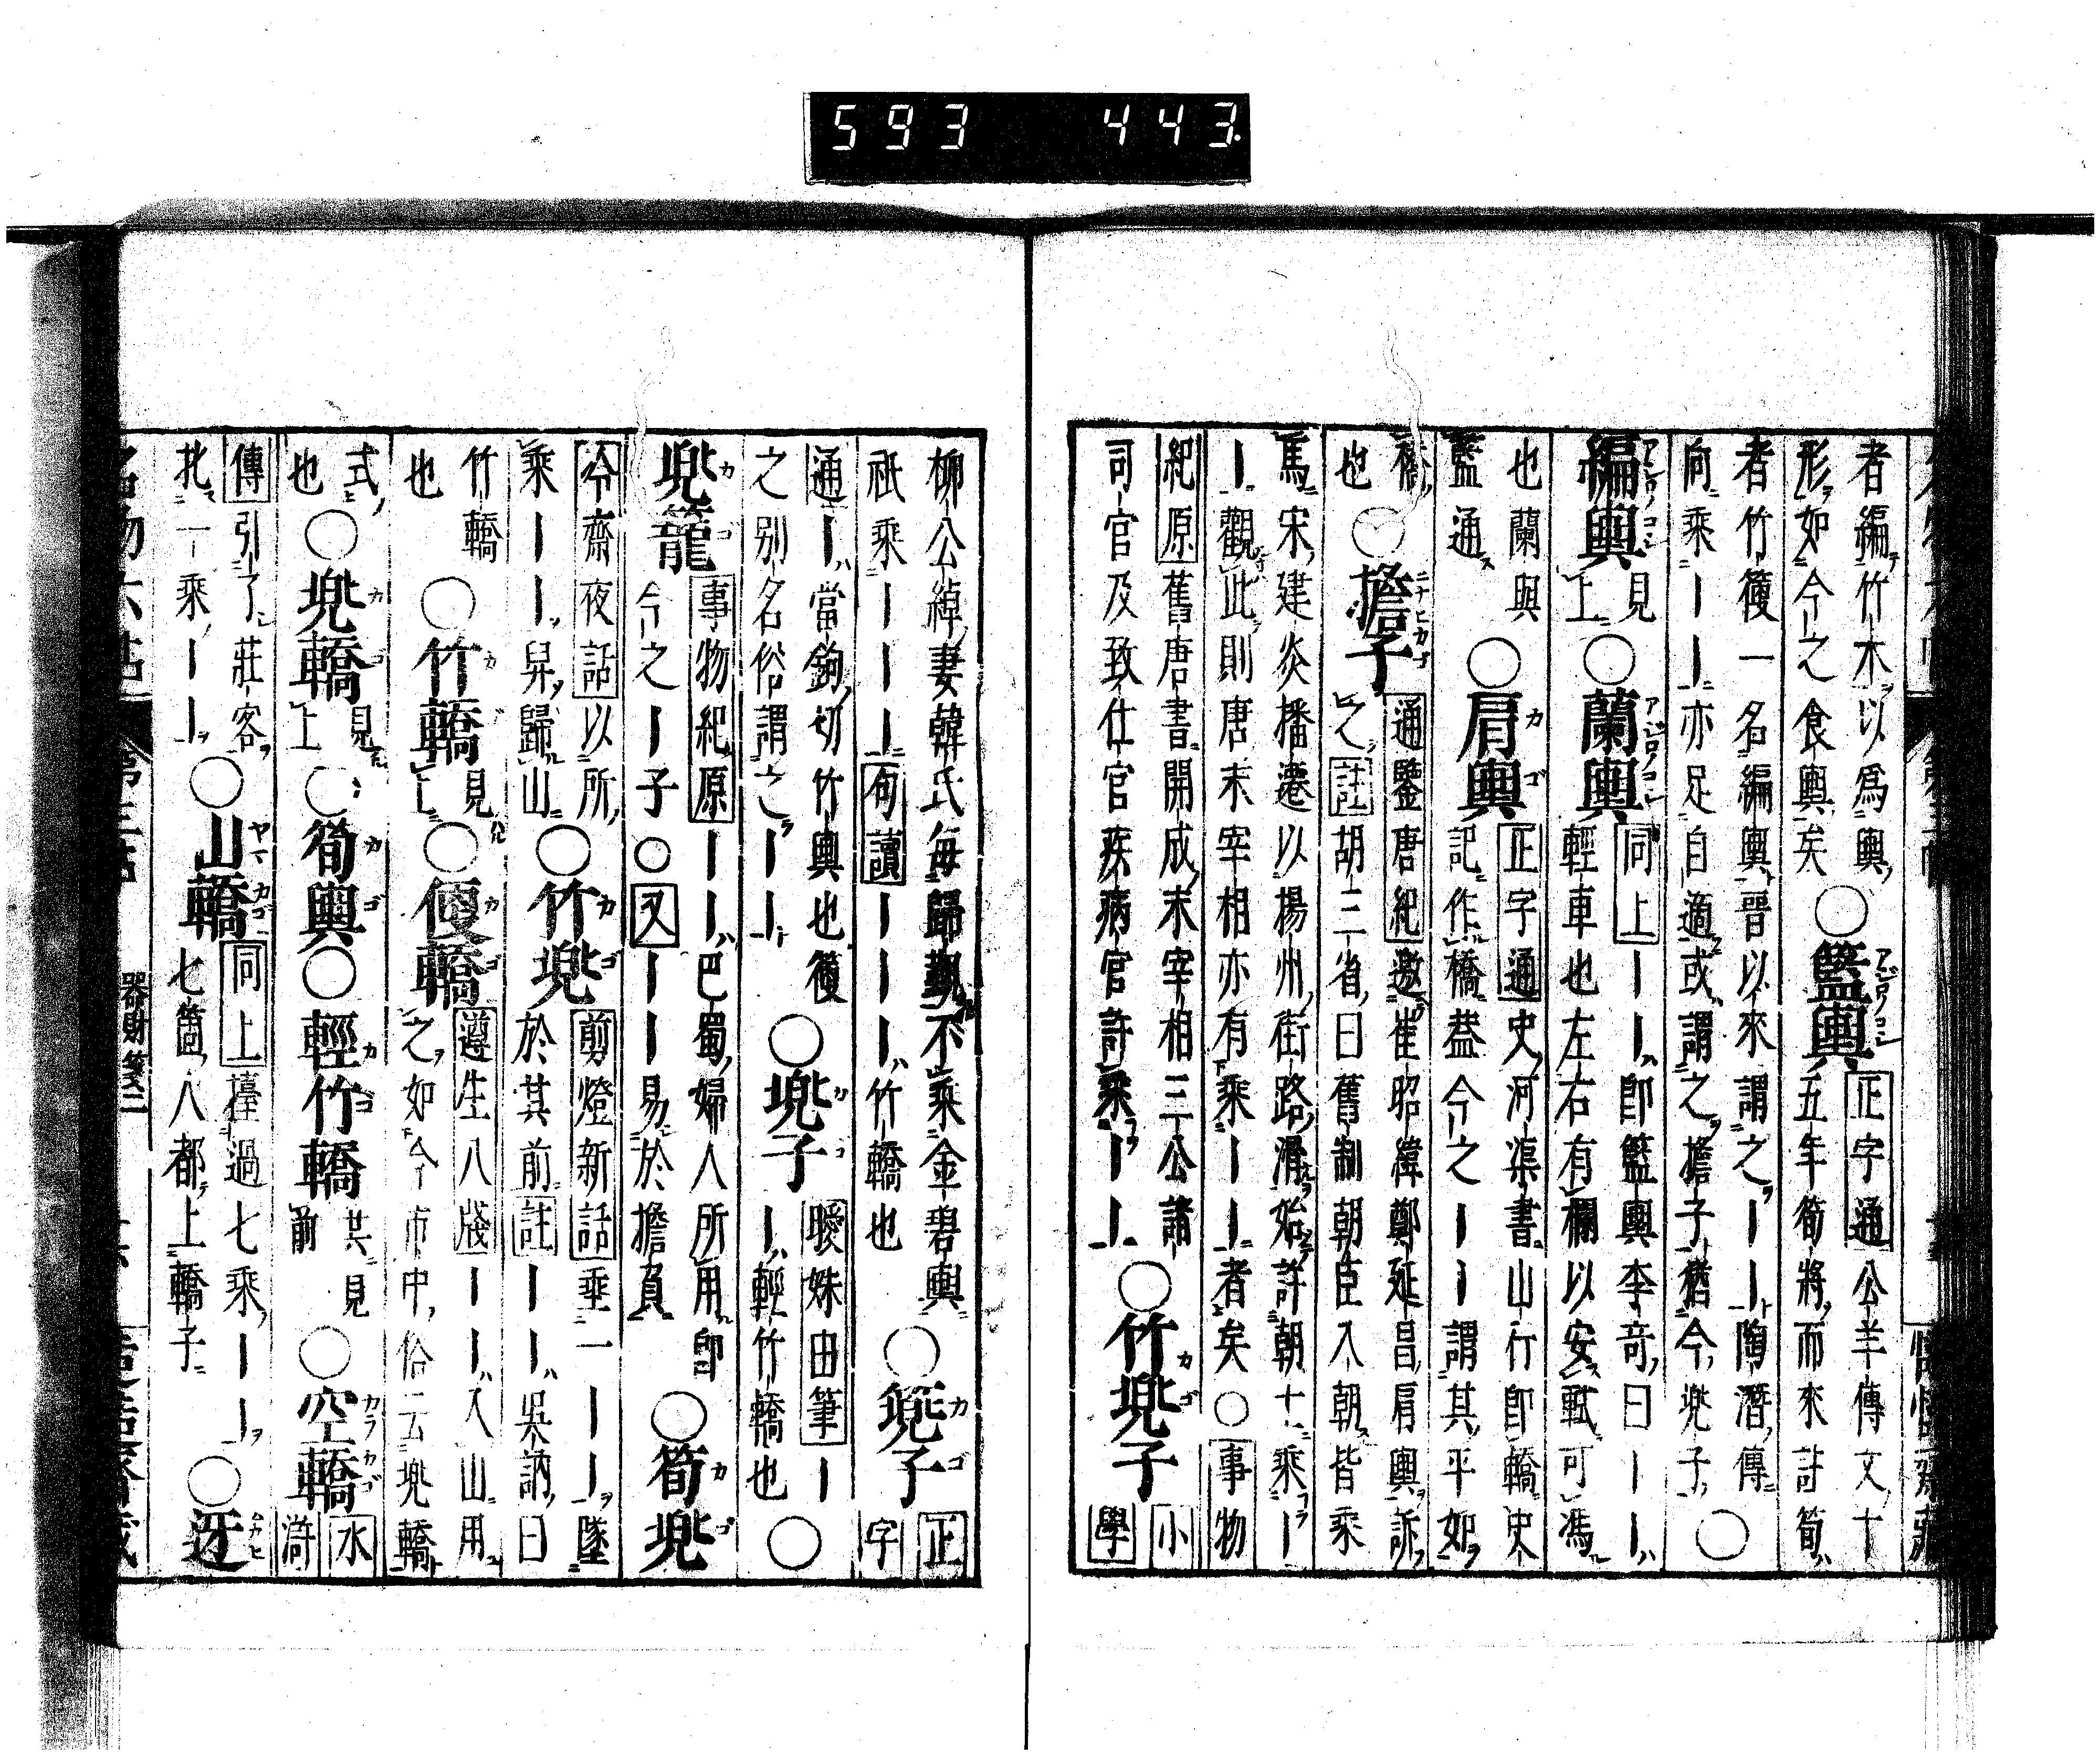 593 443
者編竹木以爲輿
形如今之食輿矣○籃輿正字通公羊傳文十
五年筍將而來註筍
者竹箯一名編輿晉以來謂之――陶潛傳
向乘――亦足自適或謂之擔子猶今兜子○
編輿見上○蘭輿同上――卽籃輿李奇曰――
輕車也左右有欄以安軾可馮
也蘭與籃通○肩輿正字通史河渠書山行卽轎史
記作橋蓋今之――謂其平如
橋也○擔子通鑒唐紀邀崔昭緯鄭延昌肩輿訴
之註胡三省曰舊制朝臣入朝皆乘
馬宋建炎播遷以揚州街路滑始許朝士乘―
―觀此則唐末宰相亦有乘――者矣○事物
紀原舊唐書開成末宰相三公諸
司官及致仕官疾病官許乘――○竹兜子小學
柳公綽妻韓氏每歸覲不乘金碧輿○篼子正字
祇乘――――句讀―――竹轎也
通―當鉤切竹輿也箯○兜子曖姝由筆―
之別名俗謂之―――輕竹轎也○
兜籠事物紀原――巴蜀婦人所用卽○筍兜
今之―子○又――易於擔負
冷齋夜話以所○竹兜剪燈新話乘一――墜
乘――舁歸山於其前註――吳訥曰
竹轎也○竹轎見上○偃轎遵生八牋――入山用
之如今市中俗云兜轎
式也○兜轎見上○筍輿○輕竹轎共見前○空轎水滸
傳引了莊客○山轎同上擡過七乘――○迓
扎一乘――七箇八都上轎子
名物六帖 第三帖 器財箋二